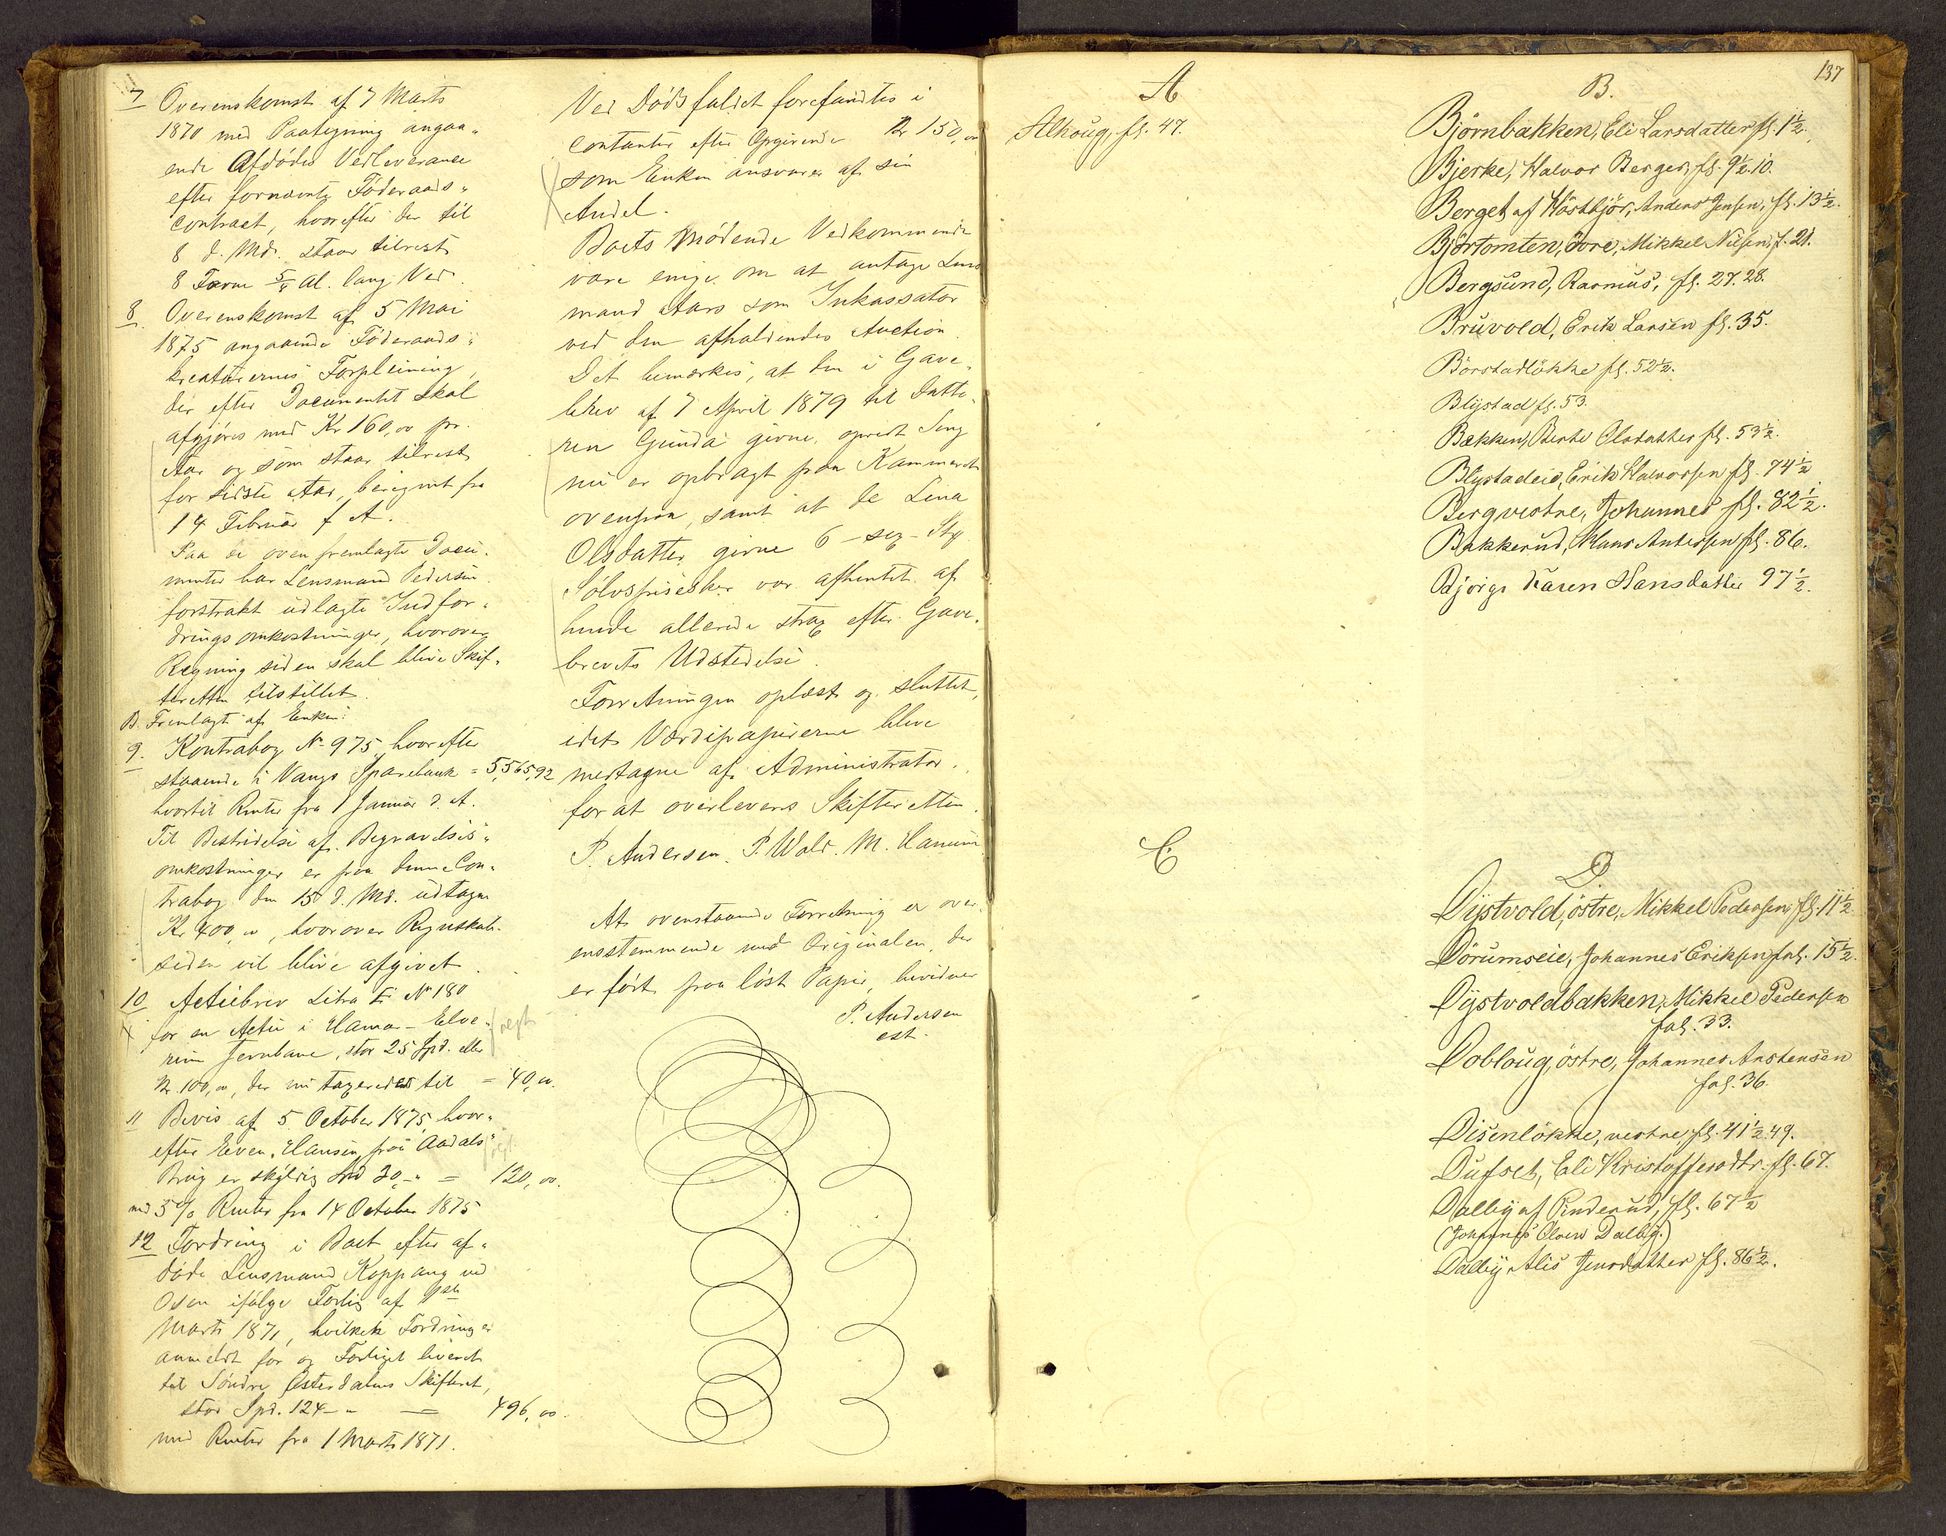 7 Overenskomst af 7 Marts
1870 med Paategning angaa-
ende Afdødes Vedleverance
efter fornævnte Føderaads-
contract, hvorefter der til
8 d. Md. staar tilrest
8 Favne 5/4 Al. lang Ved.
8. Overenskomst af 5 Mai
1875 angaaende Føderaads-
kreaturernes Forpleining,
der efter Documentet skal
afgjøres med Kr 160,00 pr.
Aar og som staar tilrest
for sidste Aar, beregnet fra
14 Februar f A.
Paa de oven fremlagte Docu-
menter har Lensmand Pedersen
forstrakt udlagte Indfor-
dringsomkostninger, hvorover
Regning siden skal blive Skif-
teretten tilstillet.
B. Fremlagt af Enken:
9. Kontrabog No 975, hvorefter
staaende i Vangs Sparebank = 5,565,92
hvortil Renter fra 1 Januar d. A.
Til Bestridelse af Begravelses-
omkostninger er fra denne Con-
trabog den 15 d. Md. udtagen
Kr 400,00, hvorover Regnskab
siden vil blive afgivet.
10 Actiebrev Litra E No 180
for en Actie i Hamar-Elve-
rum Jernbane, stor 25 Spd. eller
Kr. 100,00, der nu taxeredes til = 40,00.
11 Bevis af 5 October 1875, hvor-
efter Even Hansen fra Aadals
Brug er skyldig Spd 30,- = 120,00.
med 5 % Renter fra 14 October 1875
12 Fordring i Boet efter af-
døde Lensmand Koppang ved
Osen ifølge Forlig af 1ste
Marts 1871, hvilken Fordring er
anmeldt for og Forliget leveret
til Søndre Østerdalens Skifteret,
stor Spd. 124 - = 496,00.
med Renter fra 1 Marts 1871.
Ved Dødsfaldet forefandtes i
contanter efter Opgivende Kr 150,00
som Enken ansvarer af sin
Andel.
Boets mødende Vedkommende
vare enige om at antage Lens
mand Aars som Inkassator
ved den afholdendes Auction.
Det bemærkes, at den i Gave-
brev af 7 April 1879 til Datte-
ren Gunda givne, opredt Seng
nu er opbragt paa Kammeret
ovenpaa, samt at de Lena
Olsdatter givne 6 - sex - Stkr
Sølvspiseskeer var afhentet af
hende allerede strax efter Gave-
brevets Udstedelse.
Forretningen oplæst og sluttet,
idet Værdipapirerne bleve
medtagne af Administrator
for at overleveres Skifteretten.
P. Andersen. P. Wold. M. Hanum
At ovenstaaende Forretning er over-
ensstemmende med Originalen, der
er ført paa løst Papir, bevidner
P. Andersen
est.
137
A
Alhoug, fl. 47.
C
B.
Bjørnbakken, Eli Larsdatter fl. 1½.
Bjerke, Halvor Berger, fl. 9½. 10.
Berget af Høstbjør, Anders Jensen, fl. 13½.
Bjørtomten, øvre, Mikkel Nilsen, f. 21.
Bergsund, Rasmus, fl. 27. 28.
Bruvold, Erik Larsen fl. 35.
Børstadløkke fl. 52½.
Blystad fl. 53.
Bækken, Berte Olsdatter fl. 53½.
Blystadeie, Erik Halvorsen fl. 74½
Berg vestre, Johannes fl. 82½.
Bakkerud, Hans Andersen fl. 86.
Bjørge Karen Hansdatter 97½.
D.
Dystvold, østre, Mikkel Pedersen fl. 11½
Dørumseie, Johannes Eriksen fol. 15½.
Dystvoldbakken, Mikkel Pedersen
fol. 33.
Dobloug, østre, Johannes Anstensen
fol. 36.
Disenløkke, vestre, fl. 41½. 49.
Dufset, Eli Kristoffersdtr. fl. 67.
Dalby af Pinderud, fl. 67½
(Johannes Olsen Dalby.)
Dalby Alis Jensdatter fl. 86½.